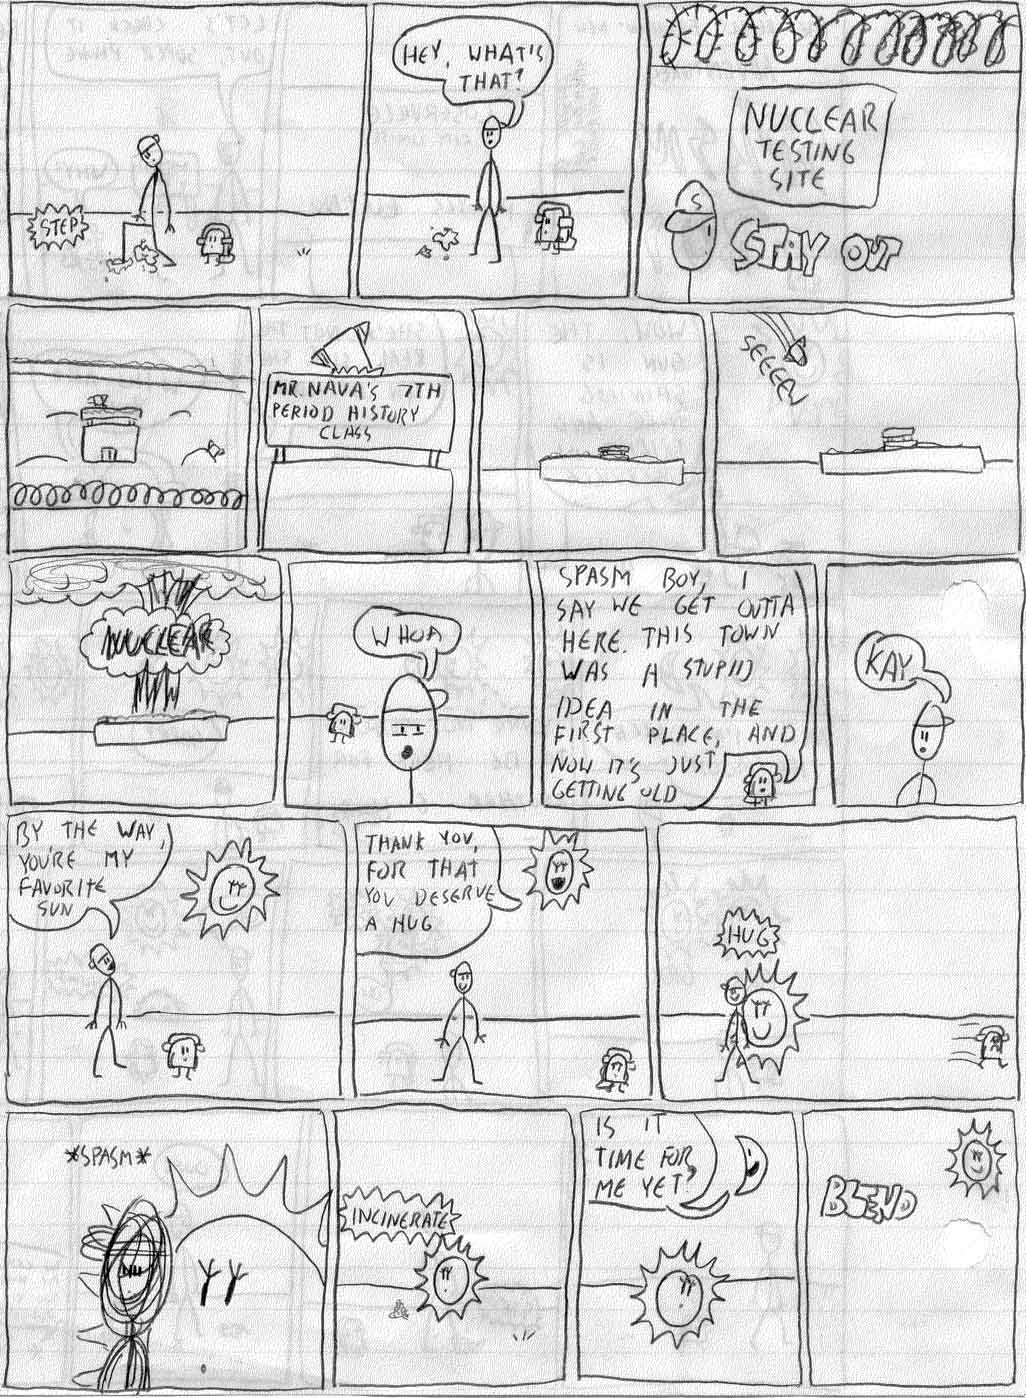 STEP
HEY, WHAT'S
THAT?
NUCLEAR
TESTING
SITE
S
STAY OUT
MR. NAVA'S 7TH
PERIOD HISTORY
CLASS
NUCLEAR
WHOA
SPASM BOY, I
SAY WE GET OUTTA
HERE. THIS TOWN
WAS A STUPID
IDEA IN THE
FIRST PLACE, AND
NOW IT'S JUST
GETTING OLD
KAY
BY THE WAY,
YOU'RE MY
FAVORITE
SUN
THANK YOU,
FOR THAT
YOU DESERVE
A HUG
HUG
*SPASM*
INCINERATE
IS IT
TIME FOR
ME YET?
BLEND